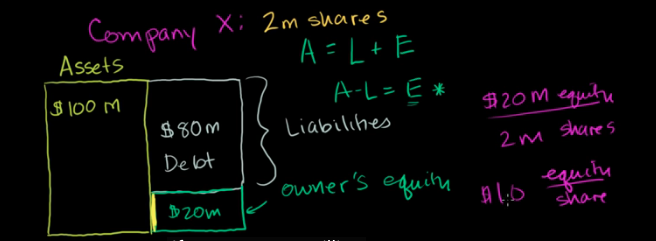 Company X: 2m shares
A = L + E
Assets
A-L = E *
$100 M
$80m
Debt
Liabilities
$20M equity
2m shares
owner's equity
$20m
$10 equity
share